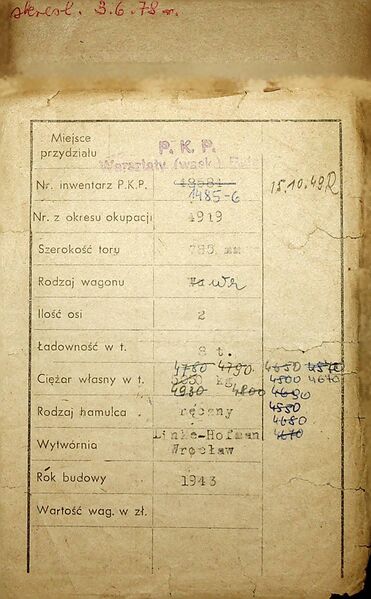 skreśl. 3.6.78 r.
Miejsce przydziału P. K. P.
Warsztaty (wąsk.)
Nr. inwentarz P.K.P. 49584 15.10.49
1485-6
Nr. z okresu okupacji 4919
Szerokość toru 785 mm
Rodzaj wagonu Wa
Ilość osi 2
Ładowność w t. 8 t.
4780 4790 4650 4570
Ciężar własny w t. kg 4500 4670
4930 4800
4550
4650
4670
Rodzaj hamulca ręczny
Wytwórnia Linke-Hofman
Wrocław
Rok budowy 1943
Wartość wag. w zł.